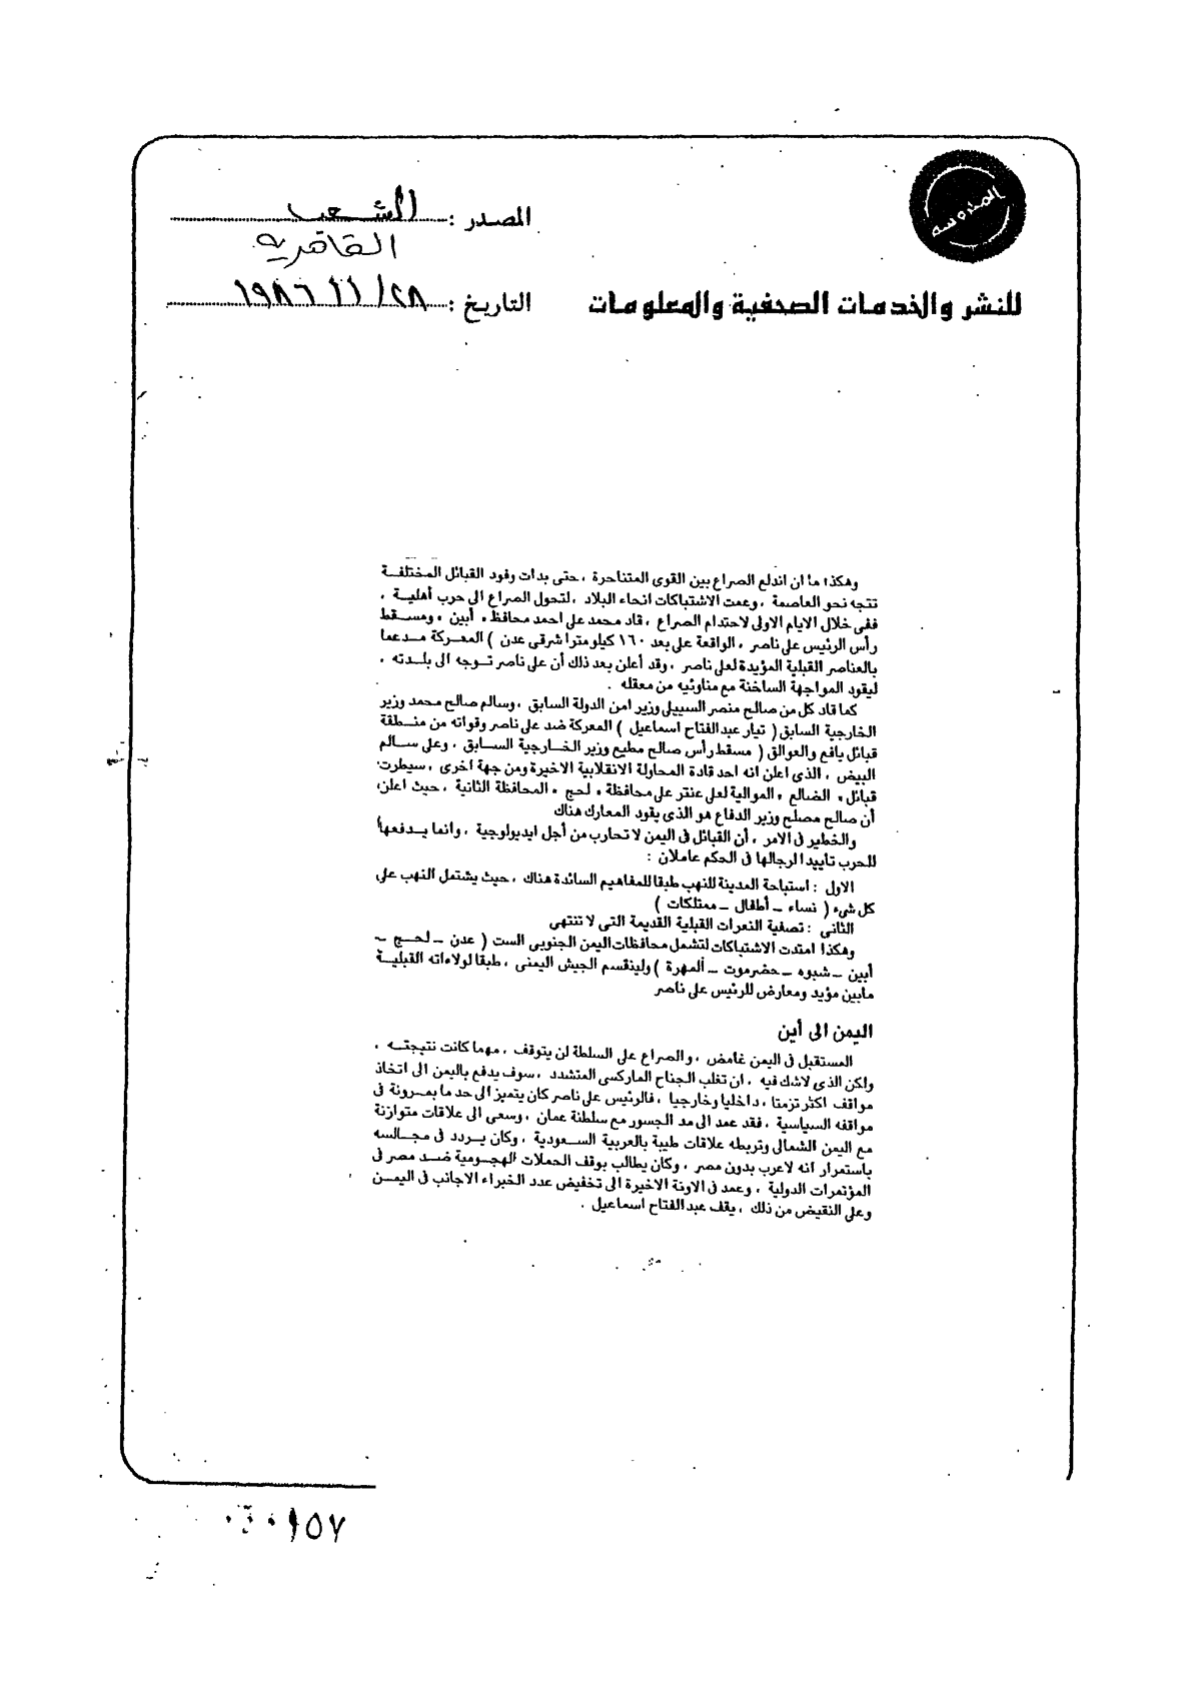 المحروسة
المصدر : الشعب
القاهرية
للنشر والخدمات الصحفية والمعلومات
التاريخ : ٢٨/ ١/ ١٩٨٦
وهكذا ما ان اندلع الصراع بين القوى المتناحرة ، حتى بدات وفود القبائل المختلفـة
تتجه نحو العاصمة ، وعمت الاشتباكات انحاء البلاد ، لتحول الصراع الى حرب أهليـة ،
ففى خلال الايام الاولى لاحتدام الصراع ، قاد محمد على احمد محافظ « أبين » ومسـقط
رأس الرئيس على ناصر ، الواقعة على بعد ١٦٠ كيلومترا شرقى عدن ) المعـركة مـدعما
بالعناصر القبلية المؤيدة لعلى ناصر ، وقد أعلن بعد ذلك أن على ناصر تـوجه الى بلـدته ،
ليقود المواجهة الساخنة مع مناوئيه من معقله .
كما قاد كل من صالح منصر السييلى وزير امن الدولة السابق ، وسالم صالح محمد وزير
الخارجية السابق ( تيار عبدالفتاح اسماعيل ) المعركة ضد على ناصر وقواته من منـطقة
قبائل يافع والعوالق ( مسقط رأس صالح مطيع وزير الخـارجية السـابق ، وعلى سـالم
البيض ، الذى اعلن انه احد قادة المحاولة الانقلابية الاخيرة ومن جهة اخرى ، سيطرت
قبائل « الضالع » الموالية لعلى عنتر على محافظة « لحج » المحافظة الثانية ، حيث اعلن
أن صالح مصلح وزير الدفاع هو الذى يقود المعارك هناك
والخطير فى الامر ، أن القبائل فى اليمن لا تحارب من أجل ايديولوجية ، وانما يـدفعها
للحرب تأييدا لرجالها فى الحكم عاملان :
الاول : استباحة المدينة للنهب طبقا للمفاهيم السائدة هناك ، حيث يشتمل النهب على
كل شىء ( نساء ــ أطفال ــ ممتلكات )
الثانى : تصفية النعرات القبلية القديمة التى لا تنتهى
وهكذا امتدت الاشتباكات لتشمل محافظات اليمن الجنوبى الست ( عدن ــ لحـج ــ
أبين ــ شبوه ــ حضرموت ــ المهرة ) ولينقسم الجيش اليمنى ، طبقا لولاءاته القبليـة
مابين مؤيد ومعارض للرئيس على ناصر
اليمن الى أين
المستقبل فى اليمن غامض ، والصراع على السلطة لن يتوقف ، مهما كانت نتيجتـه ،
ولكن الذى لاشك فيه ، ان تغلب الجناح الماركسى المتشدد ، سوف يدفع باليمن الى اتخاذ
مواقف اكثر تزمتا ، داخليا وخارجيا ، فالرئيس على ناصر كان يتميز الى حد ما بمـرونة فى
مواقفه السياسية ، فقد عمد الى مد الجسور مع سلطنة عمان ، وسعى الى علاقات متوازنة
مع اليمن الشمالى وتربطه علاقات طيبة بالعربية السـعودية ، وكان يـردد فى مجـالسه
باستمرار انه لاعرب بدون مصر ، وكان يطالب بوقف الحملات الهجـومية ضـد مصر فى
المؤتمرات الدولية ، وعمد فى الاونة الاخيرة الى تخفيض عدد الخبراء الاجانب فى اليمـن
وعلى النقيض من ذلك ، يقف عبدالفتاح اسماعيل .